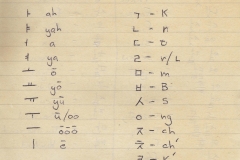 ㅏ ah
ㅑ yah
ㅓ a
ㅕ ya
ㅗ ō
ㅛ yō
ㅠ yū
ㅜ ū/oo
ㅡ ōōō
ㅣ ē
ㄱ - K
ㄴ - n
ㄷ - D
ㄹ - r/L
ㅁ - m
ㅂ - B
ㅅ - S
ㅇ - ng
ㅈ - ch
ㅊ - ch'